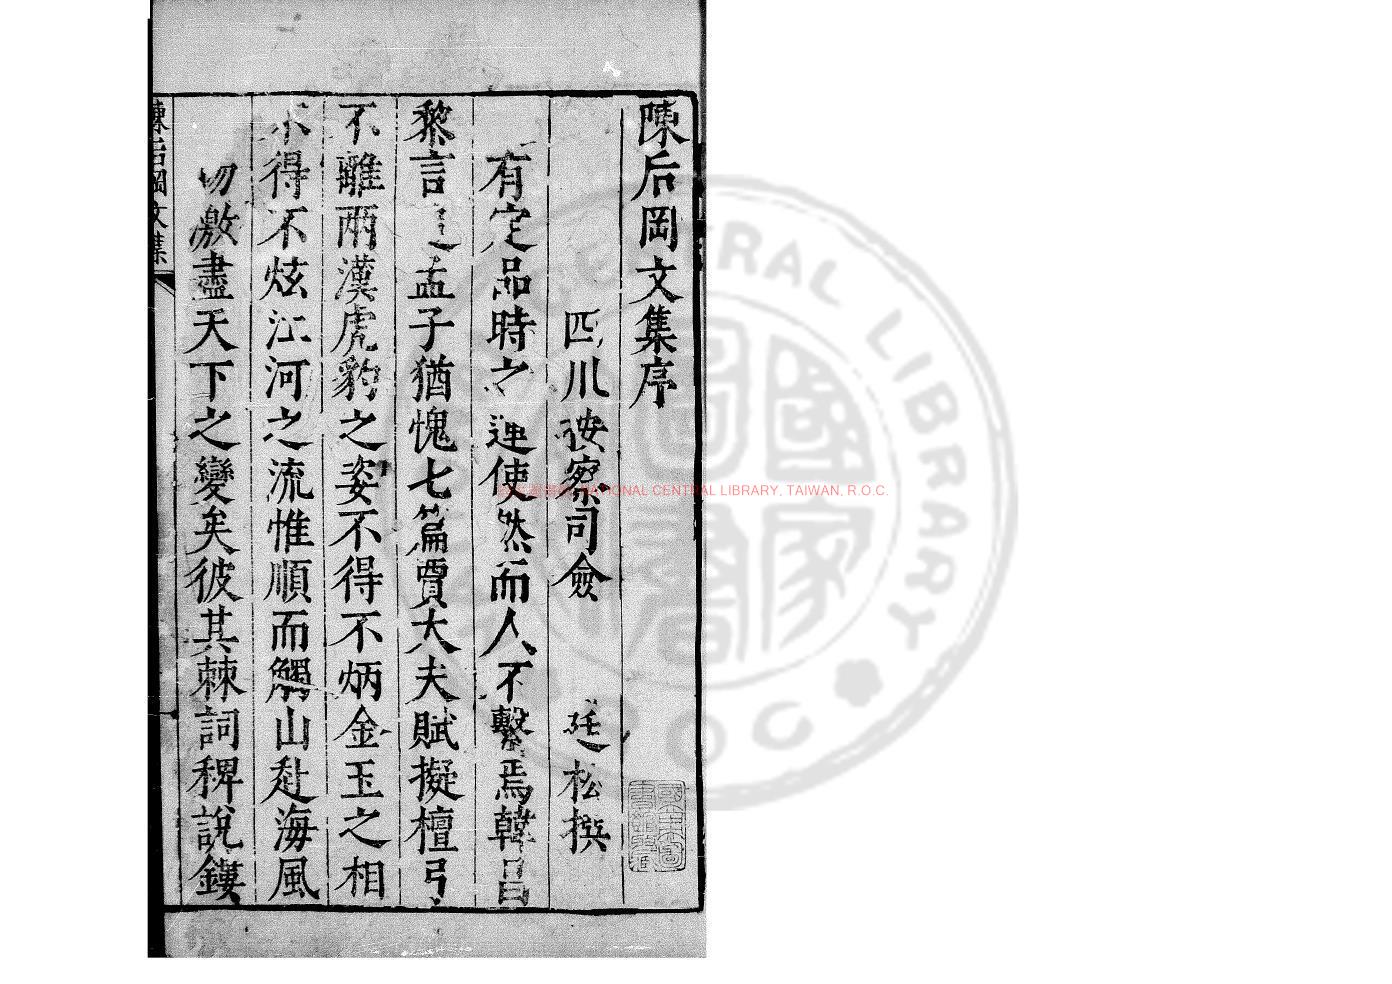 陳后岡文集序
四川按察司僉　廷松撰
有定品時之運使然而人不繫焉韓昌
黎言之孟子猶愧七篇賈大夫賦擬檀弓
不離兩漢虎豹之姿不得不炳金玉之相
不得不炫江河之流惟順而觸山赴海風
 激盡天下之變矣彼其棘詞稗說鏤
陳后岡文集
NATIONAL CENTRAL LIBRARY, TAIWAN, R.O.C.
CENTRAL LIBRARY